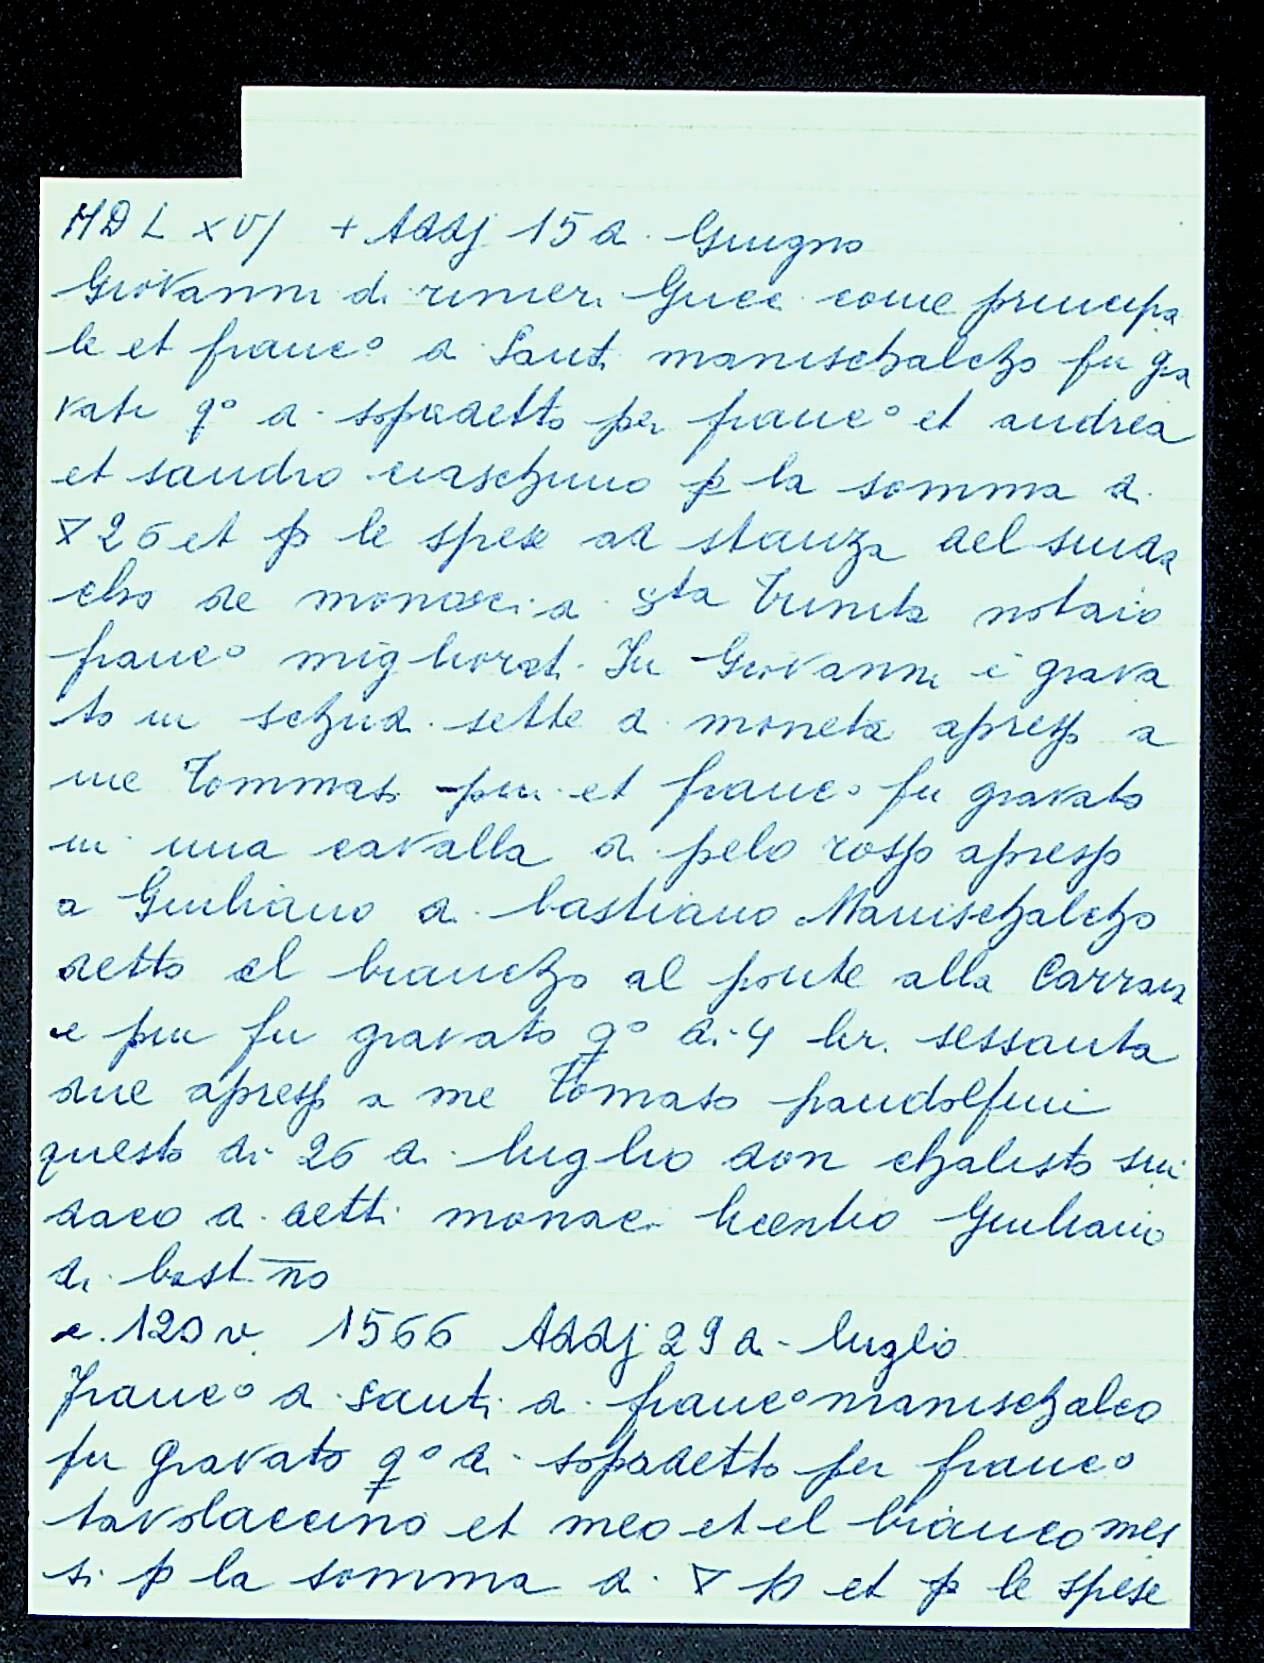 MDLXVJ + Addj 15 di Giugno
Giovanni di rinieri Gucci come principa
le et franc° di Santi manischalcho fu gra
vati q° di sopradetto per franc° et andrea
et sandro ciaschuno p la somma di
▽ 26 et p le spese ad stanza del sinda
cho de monaci di sta trinita notaio
franc° migliorati. In Giovanni è grava
to in schudi sette di moneta apresso a
me Tommaso pan. et franc° fu gravato
in una cavalla di pelo rosso apresso
a Giuliano di bastiano Manischalcho
detto el brancho al ponte alla Carraia
e piu fu gravato q° di 4 lir. sessanta
due apresso a me Tomaso pandolfini
questo di 26 di luglio don chalisto sin
daco di detti monaci licentio Giuliano
di bast.no
c. 120 v. 1566 Addj 29 di luglio
franc° di santi di franc° manischalco
fu gravato q° di sopradetto per franc°
tavolaccino et meo et el bianco mes
si p la somma di ▽ et p le spese